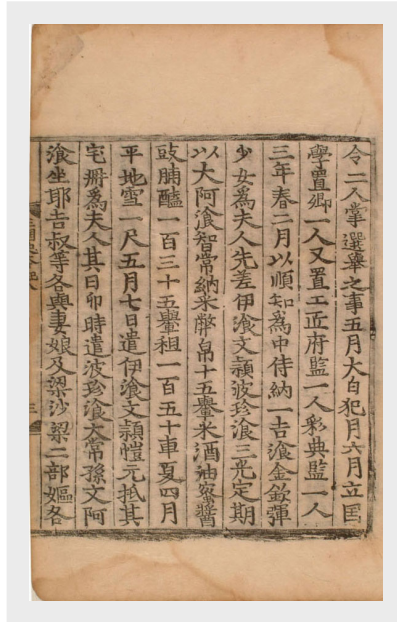 令二人掌選擧之事五月大白犯月六月立国
學置卿一人又置工匠府監一人彩典監一人
三年春二月以順知爲中侍納一吉飡金欽運
少女爲夫人先差伊飡文穎波珍飡三光定期
以大阿飡智常納采幣帛十五轝米酒油蜜醬
豉脯醯一百三十五轝租一百五十車夏四月
平地雪一尺五月七日遣伊飡文穎愷元抵其
宅冊爲夫人其日卯時遣波珍飡大常孫文阿
飡坐耶吉叔等各與妻娘及梁沙梁二部嫗各
三